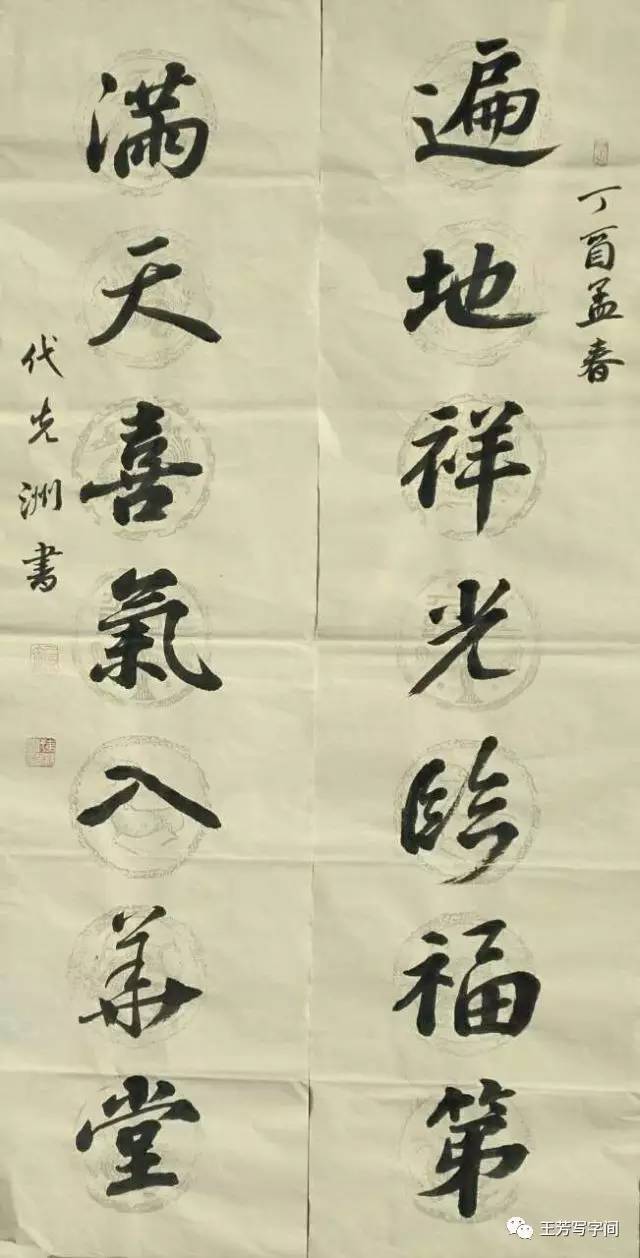 丁酉孟春
遍地祥光临福第
满天喜氣入華堂
代先洲書
王芳写字间